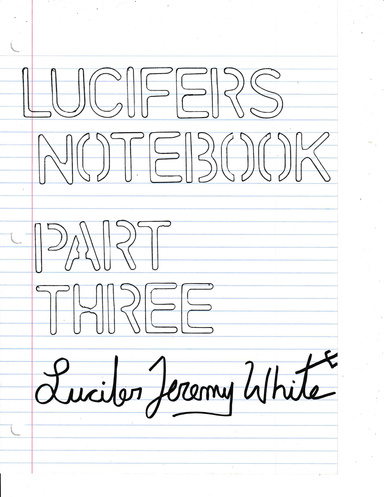 LUCIFERS
NOTEBOOK
PART
THREE
Lucifer Jeremy White